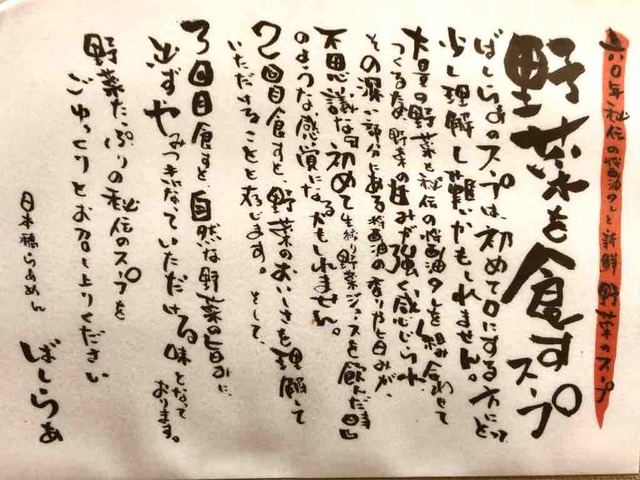 六〇年秘伝の醤油タレと新鮮野菜のスープ
野菜を食すスープ
ばしらぁのスープは、初めて口にする方にとって
少し理解し難いかもしれません。
大量の野菜と秘伝の醤油タレを組み合わせて
つくるため、野菜の甘みが強く感じられ
その深い部分にある醤油の香りや旨みが、
不思議な、初めて生絞り野菜ジュースを飲んだ時
のような感覚になるかもしれません。
2回目食すと、野菜のおいしさを理解して
いただけることと存じます。そして、
3回目食すと自然な野菜の旨みに、
必ずやみつきになっていただける味となって
おります。
野菜たっぷりの秘伝のスープを
ごゆっくりとお召し上りください
日本橋らぁめん ばしらぁ